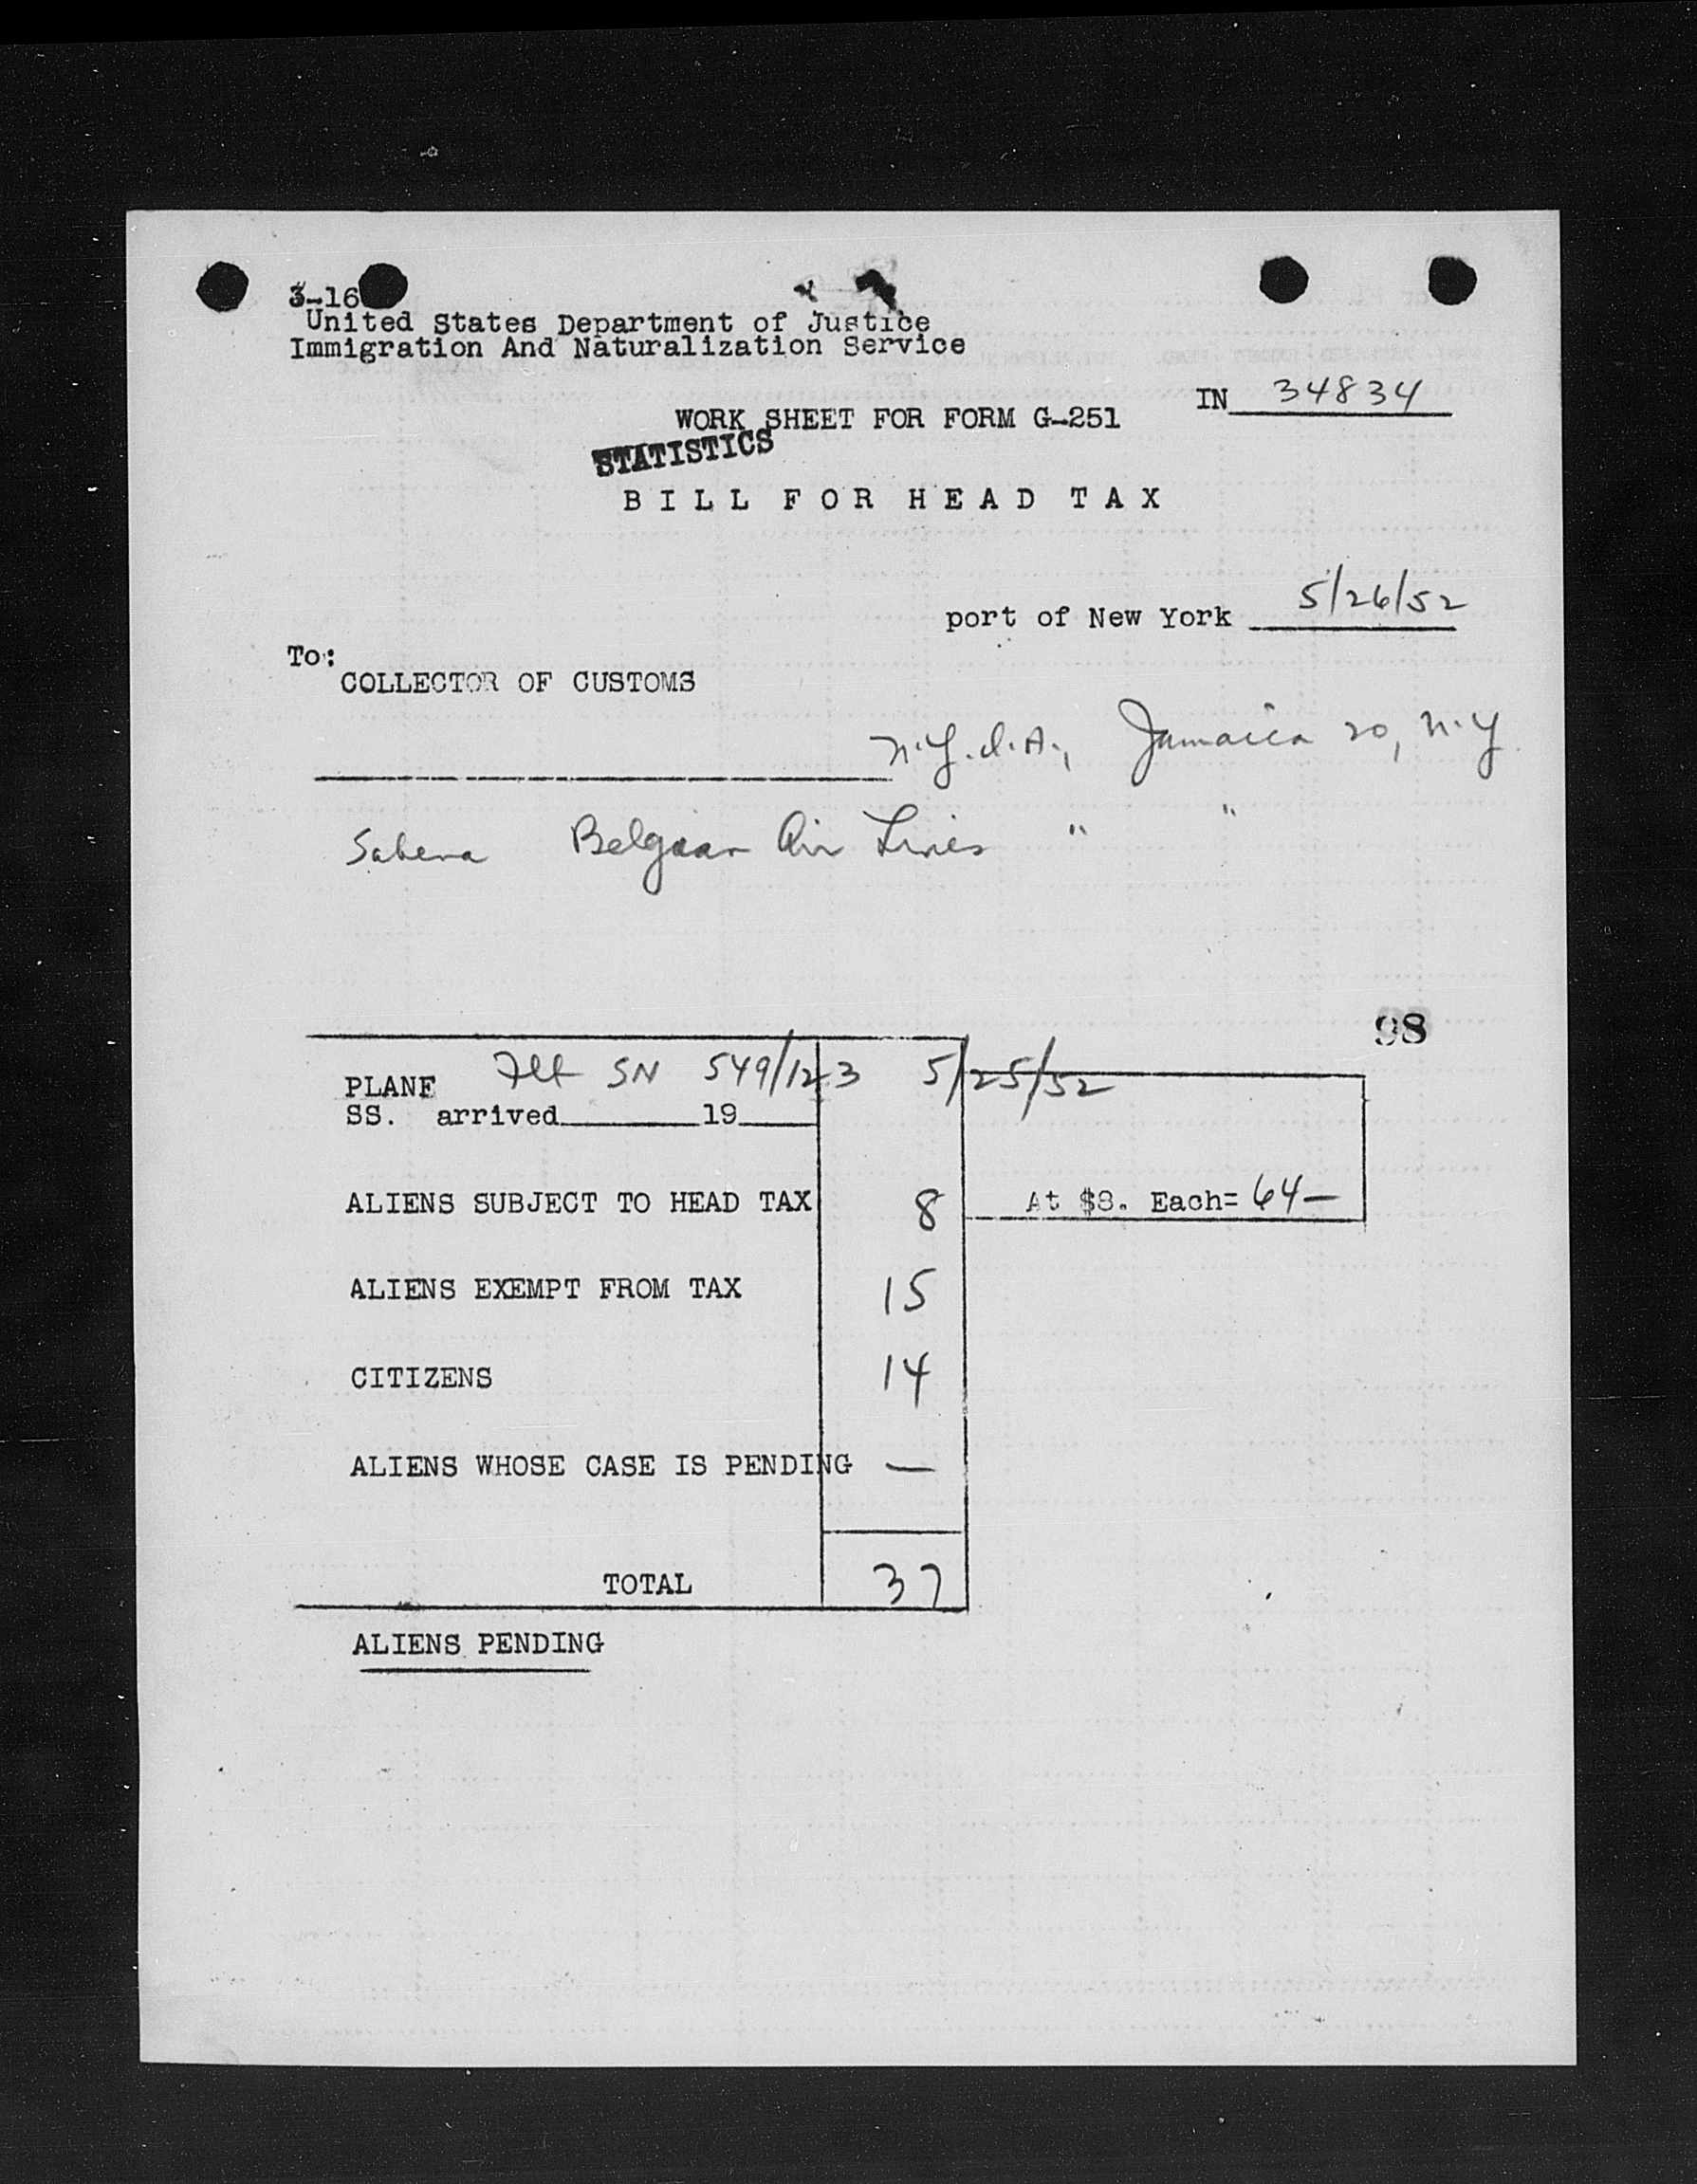 3-16
United States Department of Justice
Immigration And Naturalization Service
IN 34834
WORK SHEET FOR FORM G-251
STATISTICS
BILL FOR HEAD TAX
port of New York 5/26/52
To:
COLLECTOR OF CUSTOMS
N.Y.I.A., Jamaica 20, N.Y.
Sabena Belgian Air Lines " "
98
PLANE Flt SN 549/123 5/25/52
SS. arrived 19
ALIENS SUBJECT TO HEAD TAX 8 At $8. Each= 64—
ALIENS EXEMPT FROM TAX 15
CITIZENS 14
ALIENS WHOSE CASE IS PENDING —
TOTAL 37
ALIENS PENDING